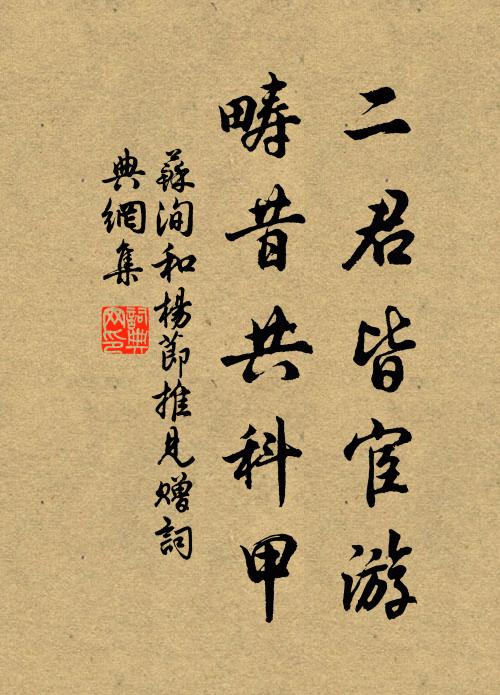 二君皆宦游
疇昔共科甲
蘇洵和楊節推見贈詞
典網集
詞典网印